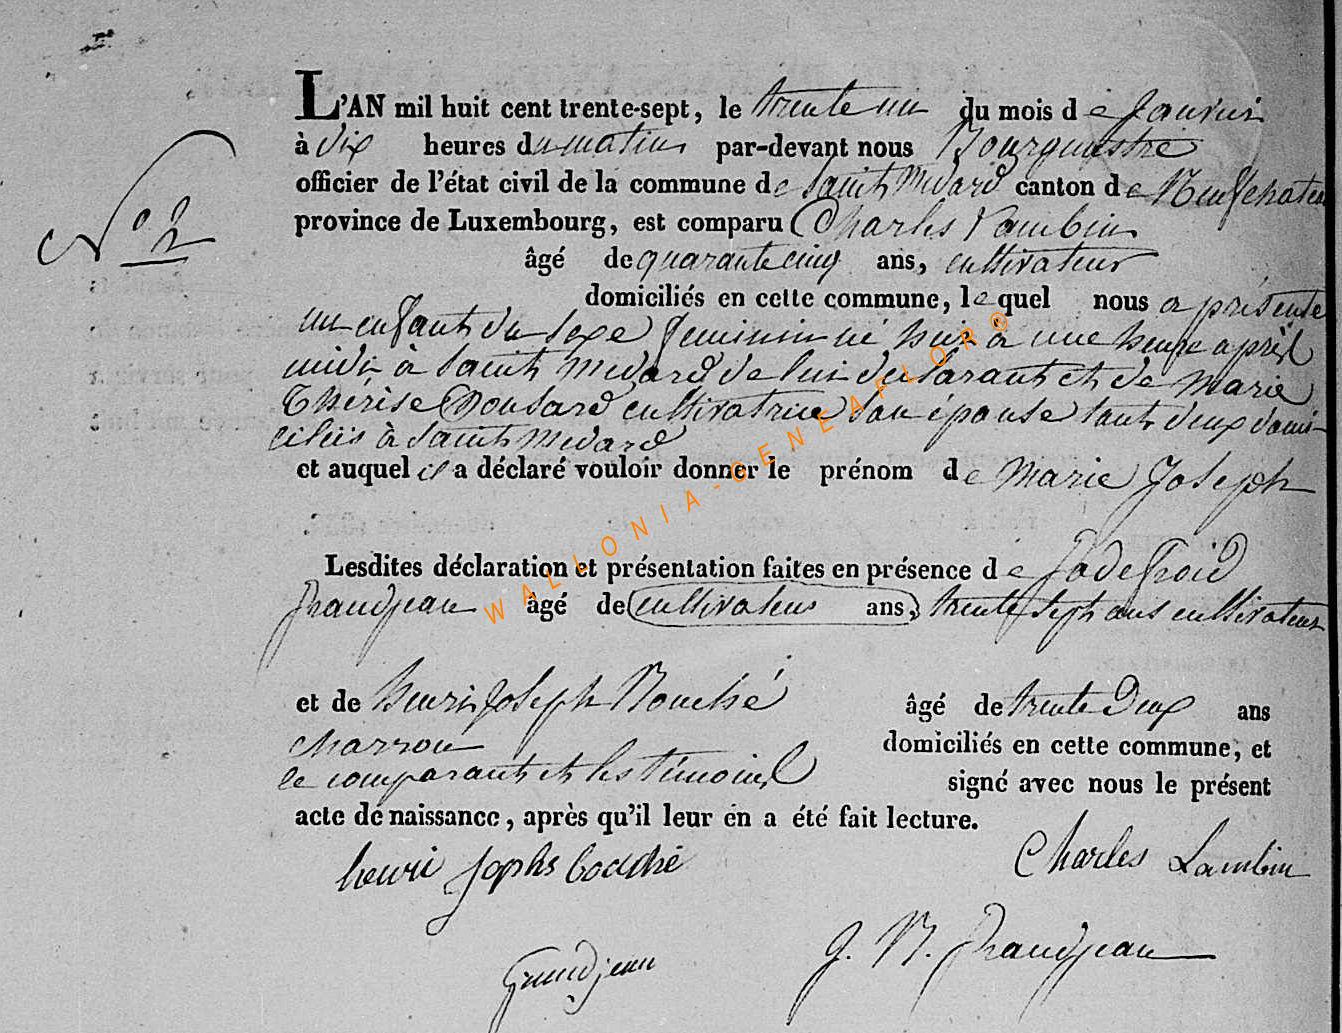 L'AN mil huit cent trente-sept, le trente un du mois de Janvier
à dix heures du matin par-devant nous Bourguestre
officier de l'état civil de la commune de Saint Medard canton de Neufchateau
province de Luxembourg, est comparu Charles Lambin
âgé de quarante cinq ans, cultivateur
domiciliés en cette commune, lequel nous a présenté
un enfant du sexe feminin né hier à une heure après
midi à Saint Medard de lui déclarant et de Marie
Thérèse cultivatrice son épouse tout deux domi-
ciliés à Saint Medard
et auquel il a déclaré vouloir donner le prénom de Marie Joseph
Lesdites déclaration et présentation faites en présence de
Grandjean âgé de cultivateur ans, trente sept ans cultivateur
et de henri Joseph Bouché âgé de trente Deux ans
charron domiciliés en cette commune, et
le comparant et les témoins signé avec nous le présent
acte de naissance, après qu'il leur en a été fait lecture.
N° 2
henri Charles Lambin
J. N. Grandjean
Grandjean
WALLONIA-GENEAFLOR©